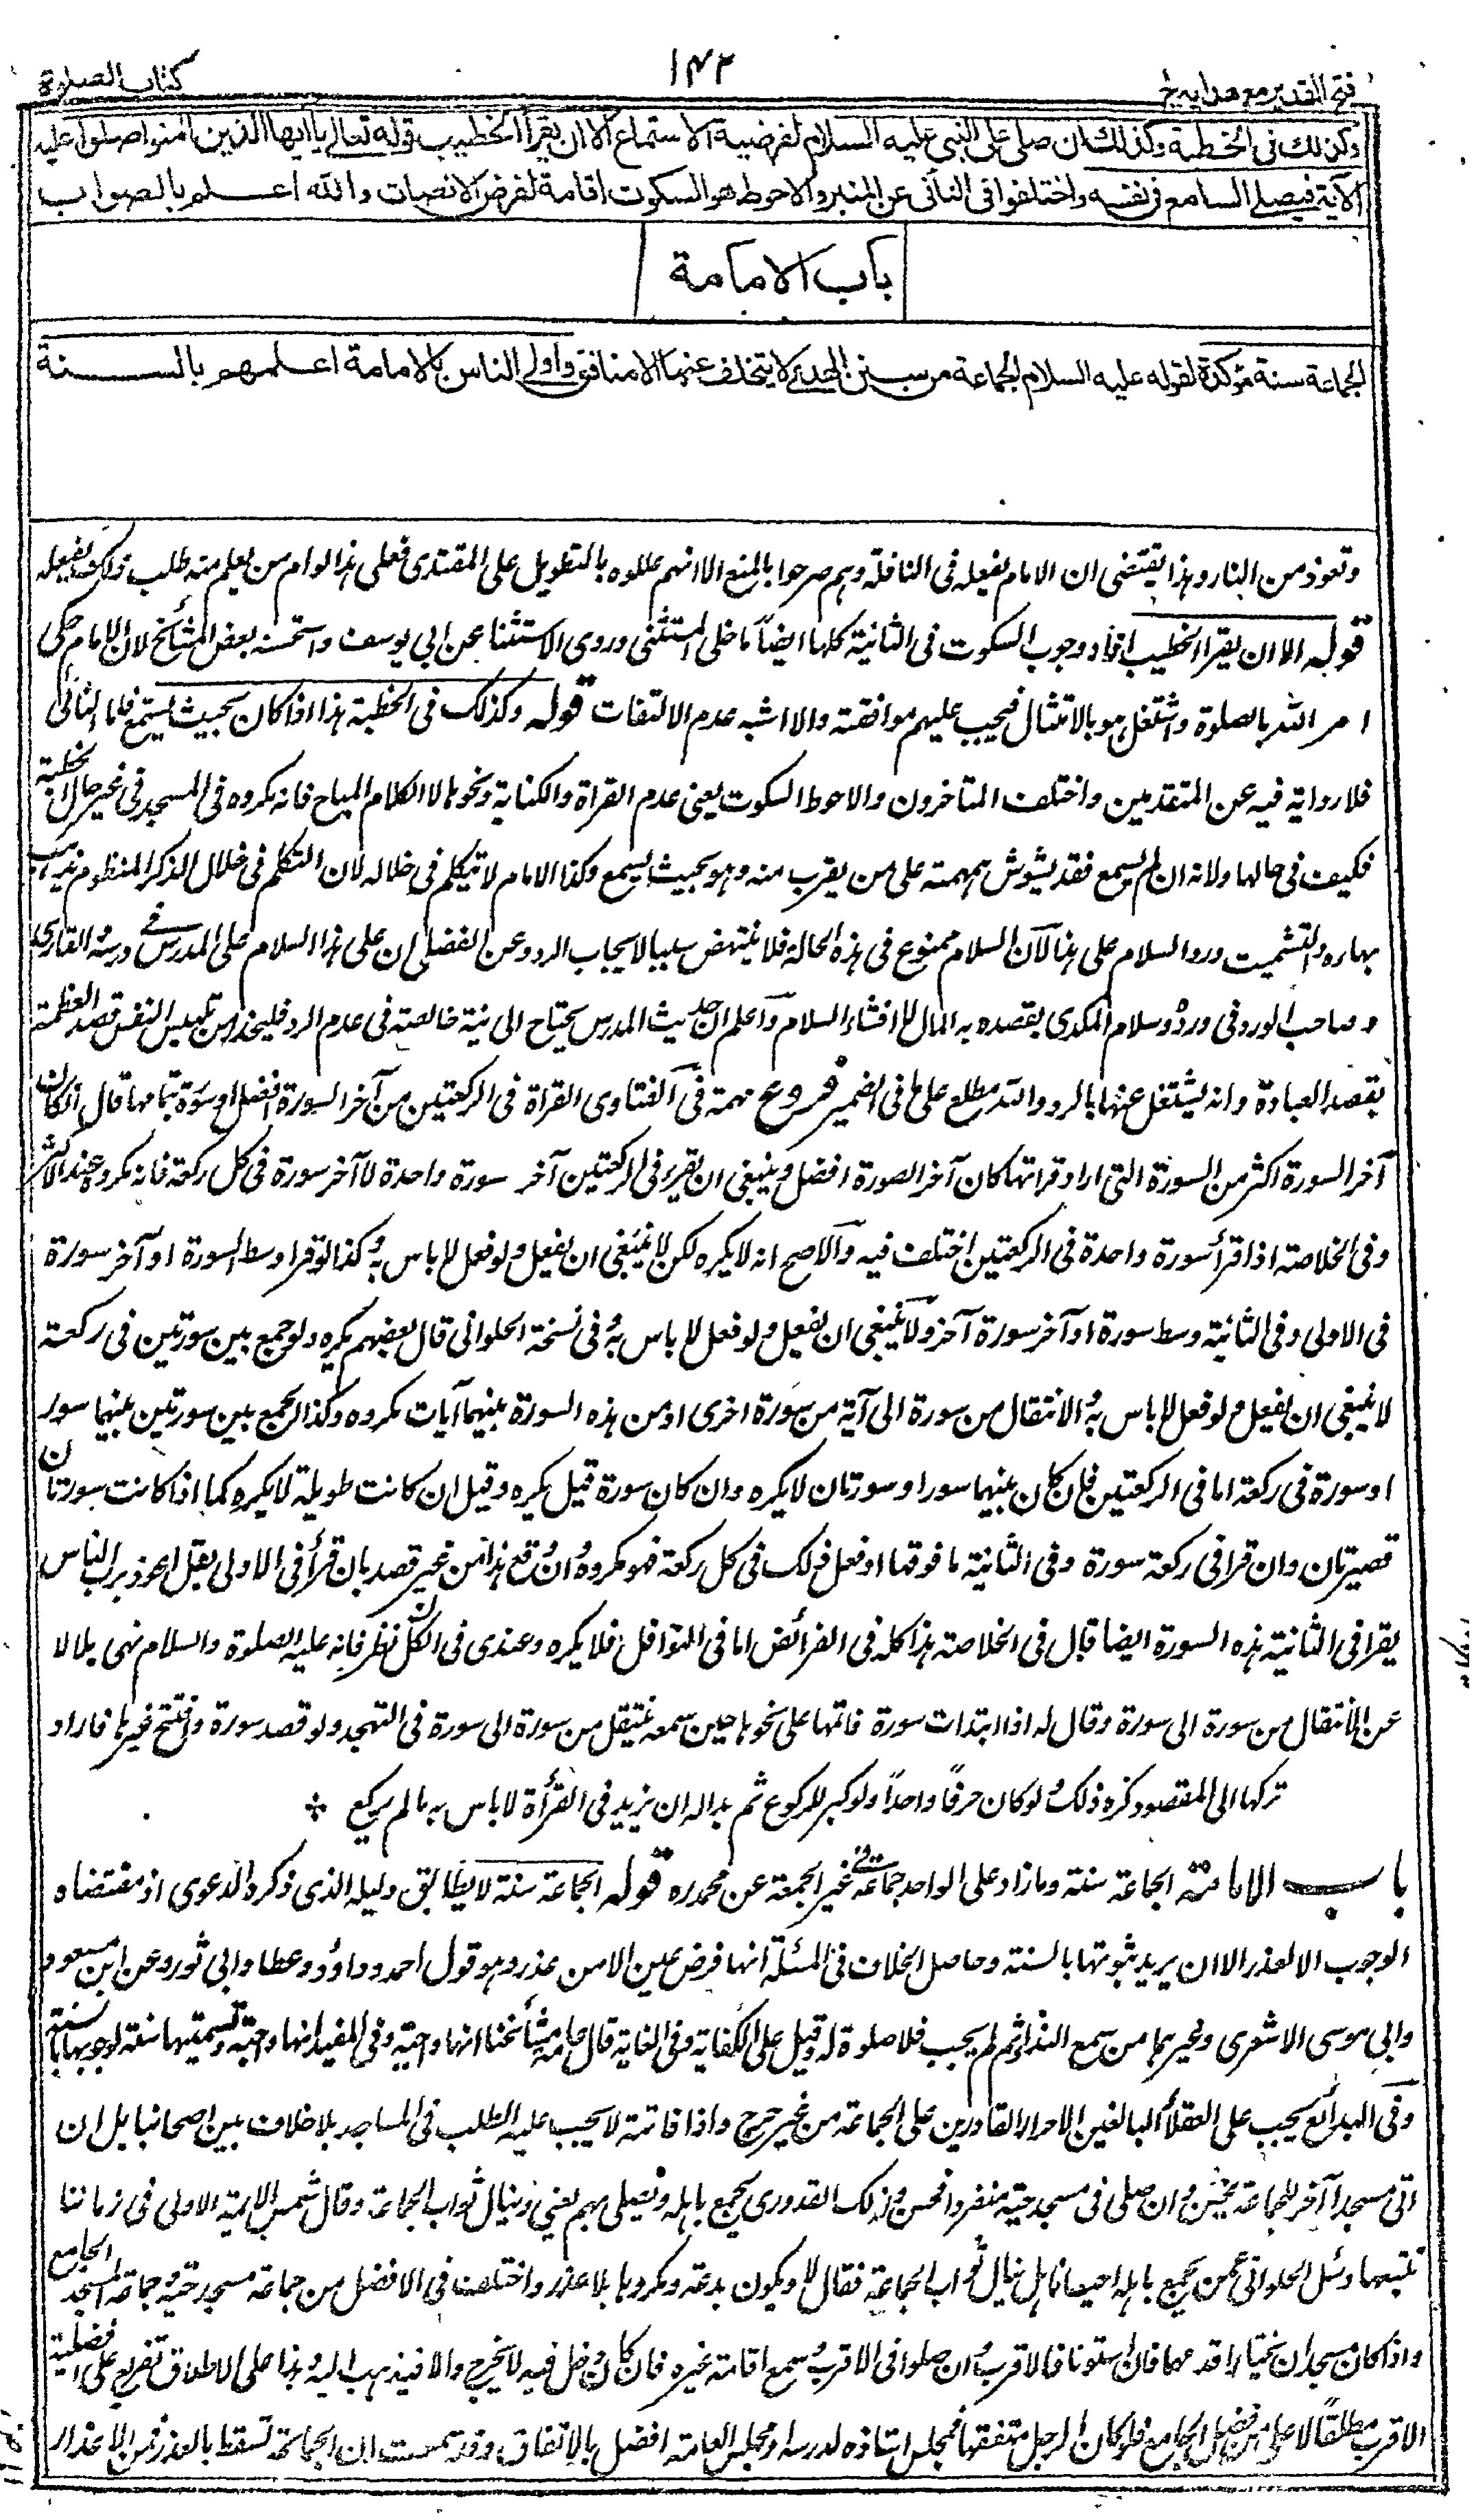 فتح القدير مع هدايه ج
۱۴۲
كتاب الصلوة
وكذلك فى الخطبة وكذلك ان صلى على النبى عليه السلام لفرضية الاستماع الا ان يقرأ الخطيب قوله تعالى يا ايها الذين امنوا صلوا عليه
الآية فيصلى السامع فى نفسه واختلفوا فى النائى عن المنبر والاحوط هو السكوت اقامة لفرض الانصات والله اعلم بالصواب
باب الامامة
الجماعة سنة مؤكدة لقوله عليه السلام الجماعة من سنن الهدى لا يتخلف عنها الا منافق واولى الناس بالامامة اعلمهم بالسنة
وتعوذ من النار وهذا يقتضى ان الامام يفعله فى النافلة وهم صرحوا بالمنع الا انهم عللوه بالتطويل على المقتدى فعلى هذا لو ام من يعلم منه طلب ذلك يفعله
قوله الا ان يقرا الخطيب افاد وجوب السكوت فى الثانية كلها ايضاً ما خلى المستثنى وروى الاستثناء عن ابى يوسف واستحسنه بعض المشائخ لان الامام حكى
امر الله بالصلوة واشتغل هو بالامتثال فيجب عليهم موافقته والا اشبه عدم الالتفات قوله وكذلك فى الخطبة هذا اذا كان بحيث يستمع فاما النائى
فلا رواية فيه عن المتقدمين واختلف المتاخرون والاحوط السكوت يعنى عدم القراة والكتابة ونحوها لا الكلام المباح فانه مكروه فى المسجد فى غير حال الخطبة
فكيف فى حالها ولانه ان لم يسمع فقد يشوش بهمهمته على من يقرب منه وهو بحيث يسمع وكذا الامام لا يتكلم فى خلاله لان التكلم فى خلال الذكر المنظوم يذهب
بهاءه والتشميت ورد السلام على هذا لان السلام ممنوع فى هذه الحالة فلا ينتهض سببا لايجاب الرد وعن الفضلى ان على هذا السلام على المدرس فى درسه والقارى
وصاحب الورد فى ورده وسلام المكدى بقصده به المال لا افشاء السلام واعلم ان حديث المدرس يحتاج الى نية خالصة فى عدم الرد فليحذر من تلبيس النفس قصد العظمة
بقصد العبادة وانه يشتغل عنها بالرد والله مطلع على ما فى الضمير فروع مهمة فى الفتاوى القراة فى الركعتين من آخر السورة افضل او سورة بتمامها قال ان كان
آخر السورة اكثر من السورة التى اراد قراتها كان آخر الصورة افضل وينبغى ان يقرء فى الركعتين آخر سورة واحدة لا آخر سورة فى كل ركعة فانه مكروه عند الاكثر
وفى الخلاصة اذا قرأ سورة واحدة فى الركعتين اختلف فيه والاصح انه لا يكره لكن لا ينبغى ان يفعل ولو فعل لا باس به وكذا لو قرا وسط السورة او آخر سورة
فى الاولى وفى الثانية وسط سورة او آخر سورة آخر ولا ينبغى ان يفعل ولو فعل لا باس به وفى نسخة الحلوانى قال بعضهم يكره ولو جمع بين سورتين فى ركعة
لا ينبغى ان يفعل ولو فعل لا باس به والانتقال من سورة الى آية من سورة اخرى او من هذه السورة بينهما آيات مكروه وكذا الجمع بين سورتين بينهما سور
او سورة فى ركعة اما فى الركعتين فان كان بينهما سور او سورتان لا يكره وان كان سورة قيل يكره وقيل ان كانت طويلة لا يكره كما اذا كانت سورتان
قصيرتان وان قرا فى ركعة سورة وفى الثانية ما فوقها او فعل ذلك فى كل ركعة فهو مكروه وان وقع هذا من غير قصد بان قرأ فى الاولى بقل اعوذ برب الناس
يقرا فى الثانية هذه السورة ايضا قال فى الخلاصة هذا كله فى الفرائض اما فى النوافل فلا يكره وعندى فى الكل نظر فانه عليه الصلوة والسلام نهى بلالا
عن الانتقال من سورة الى سورة وقال له اذا ابتدات سورة فاتمها على نحوها حين سمعه ينتقل من سورة الى سورة فى التهجد ولو قصد سورة وافتتح غيرها فاراد
تركها الى المقصود كره ذلك ولو كان حرفاً واحداً ولو كبر للركوع ثم بدا له ان يزيد فى القرأة لا باس به ما لم يركع *
باب الامامة الجماعة سنة وما زاد على الواحد جماعة فى غير الجمعة عن محمد ره قوله الجماعة سنة لا يطابق دليله الذى ذكره الدعوى اذ مقتضاه
الوجوب الا لعذر الا ان يريد ثبوتها بالسنة وحاصل الخلاف فى المسئلة انها فرض عين الا من عذر وهو قول احمد وداؤد وعطا وابى ثور وعن ابن مسعود
وابى موسى الاشعرى وغيرهما من سمع النداء ثم لم يجب فلا صلوة له وقيل على الكفاية وفى الغاية قال عامة مشائخنا انها واجبة وفى المفيد انها واجبة وتسميتها سنة لوجوبها بالسنة
وفى البدائع يجب على العقلاء البالغين الاحرار القادرين على الجماعة من غير حرج واذا فاتته لا يجب عليه الطلب فى المساجد بلا خلاف بين اصحابنا بل ان
اتى مسجداً آخر للجماعة فحسن وان صلى فى مسجد حيه منفردا فحسن وذكر القدورى يجمع باهله ويصلى بهم يعنى وينال ثواب الجماعة وقال شمس الايمة الاولى فى زماننا
تتبعها وسئل الحلوانى عمن يجمع باهله احيانا هل ينال ثواب الجماعة فقال لا ويكون بدعة ومكروها بلا عذر واختلف فى الافضل من جماعة مسجد حيه وجماعة المسجد الجامع
واذا كان مسجدان يختار اقدمهما فان استويا فالاقرب وان صلوا فى الاقرب وسمع اقامة غيره فان كان دخل فيه لا يخرج والا فيذهب اليه وهذا على الاطلاق تفريع على افضلية
الاقرب مطلقاً لا على من فضل الجامع فلو كان الرجل متفقها فمجلس استاذه لدرسه او مجلس العامة افضل بالاتفاق وقد سمعت ان الجماعة تسقط بالعذر فمن الاعذار